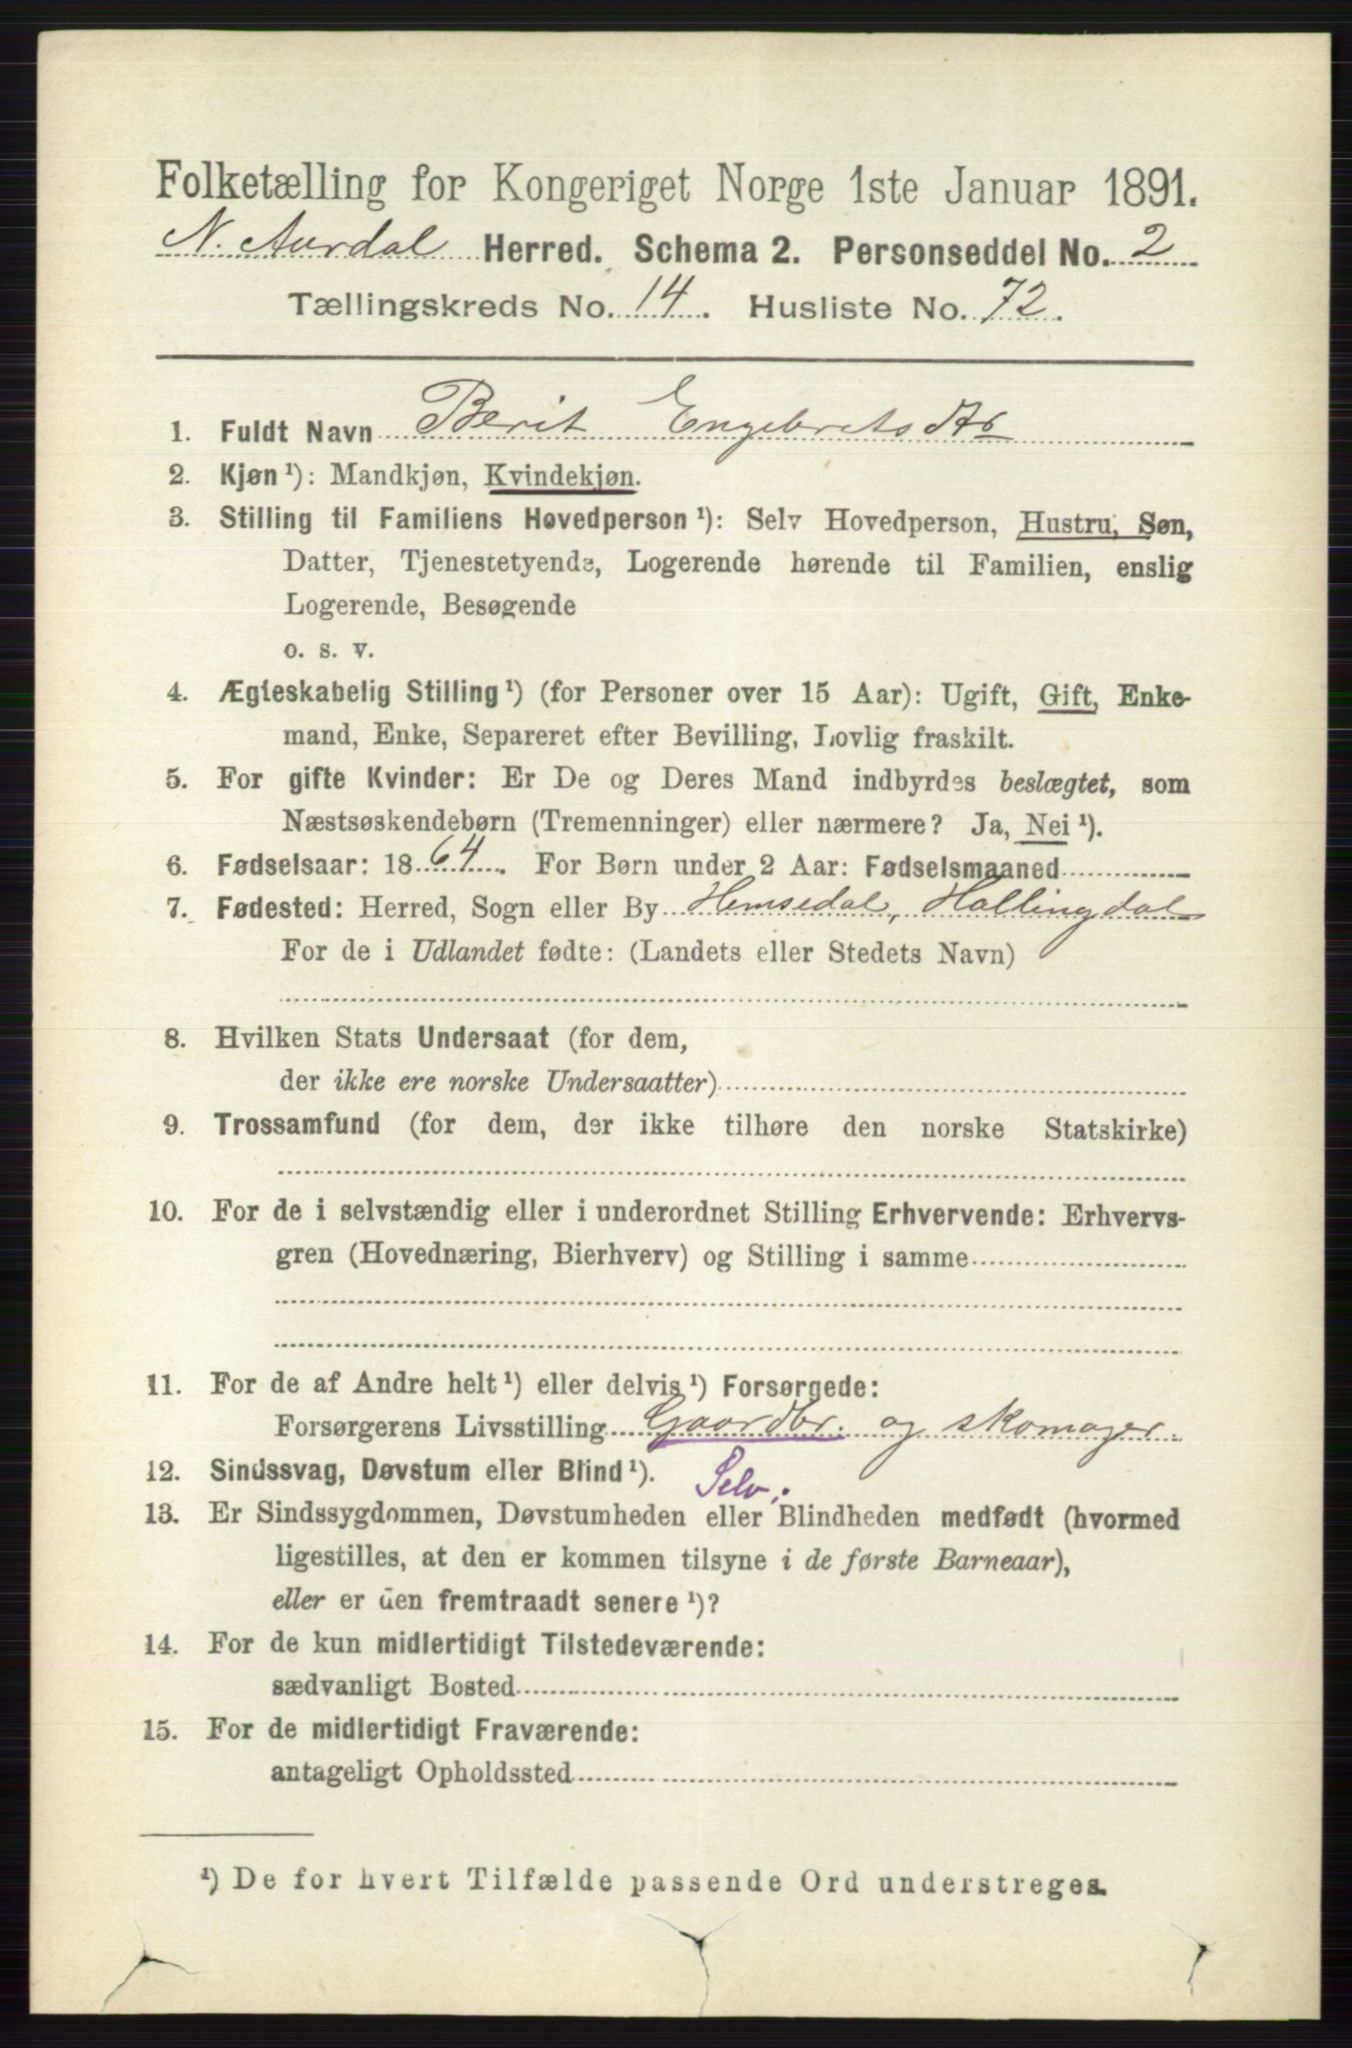 Folketælling for Kongeriget Norge 1ste Januar 1891.
N. Aurdal Herred. Schema 2. Personseddel No. 2
Tællingskreds No. 14. Husliste No. 72.
1. Fuldt Navn Berit Engebretsdtr
2. Kjøn ¹): Mandkjøn, Kvindekjøn.
3. Stilling til Familiens Hovedperson ¹): Selv Hovedperson, Hustru, Søn,
Datter, Tjenestetyende, Logerende hørende til Familien, enslig
Logerende, Besøgende
o. s. v.
4. Ægteskabelig Stilling ¹) (for Personer over 15 Aar): Ugift, Gift, Enke-
mand, Enke, Separeret efter Bevilling, Lovlig fraskilt.
5. For gifte Kvinder: Er De og Deres Mand indbyrdes beslægtet, som
Næstsøskendebørn (Tremenninger) eller nærmere? Ja, Nei ¹).
6. Fødselsaar: 1864. For Børn under 2 Aar: Fødselsmaaned
7. Fødested: Herred, Sogn eller By Hemsedal, Hallingdal
For de i Udlandet fødte: (Landets eller Stedets Navn)
8. Hvilken Stats Undersaat (for dem,
der ikke ere norske Undersaatter)
9. Trossamfund (for dem, der ikke tilhøre den norske Statskirke)
10. For de i selvstændig eller i underordnet Stilling Erhvervende: Erhvervs-
gren (Hovednæring, Bierhverv) og Stilling i samme
11. For de af Andre helt ¹) eller delvis ¹) Forsørgede:
Forsørgerens Livsstilling Gaardbr. og skomager.
12. Sindssvag, Døvstum eller Blind ¹). Selv.
13. Er Sindssygdommen, Døvstumheden eller Blindheden medfødt (hvormed
ligestilles, at den er kommen tilsyne i de første Barneaar),
eller er den fremtraadt senere ¹)?
14. For de kun midlertidigt Tilstedeværende:
sædvanligt Bosted
15. For de midlertidigt Fraværende:
antageligt Opholdssted
¹) De for hvert Tilfælde passende Ord understreges.